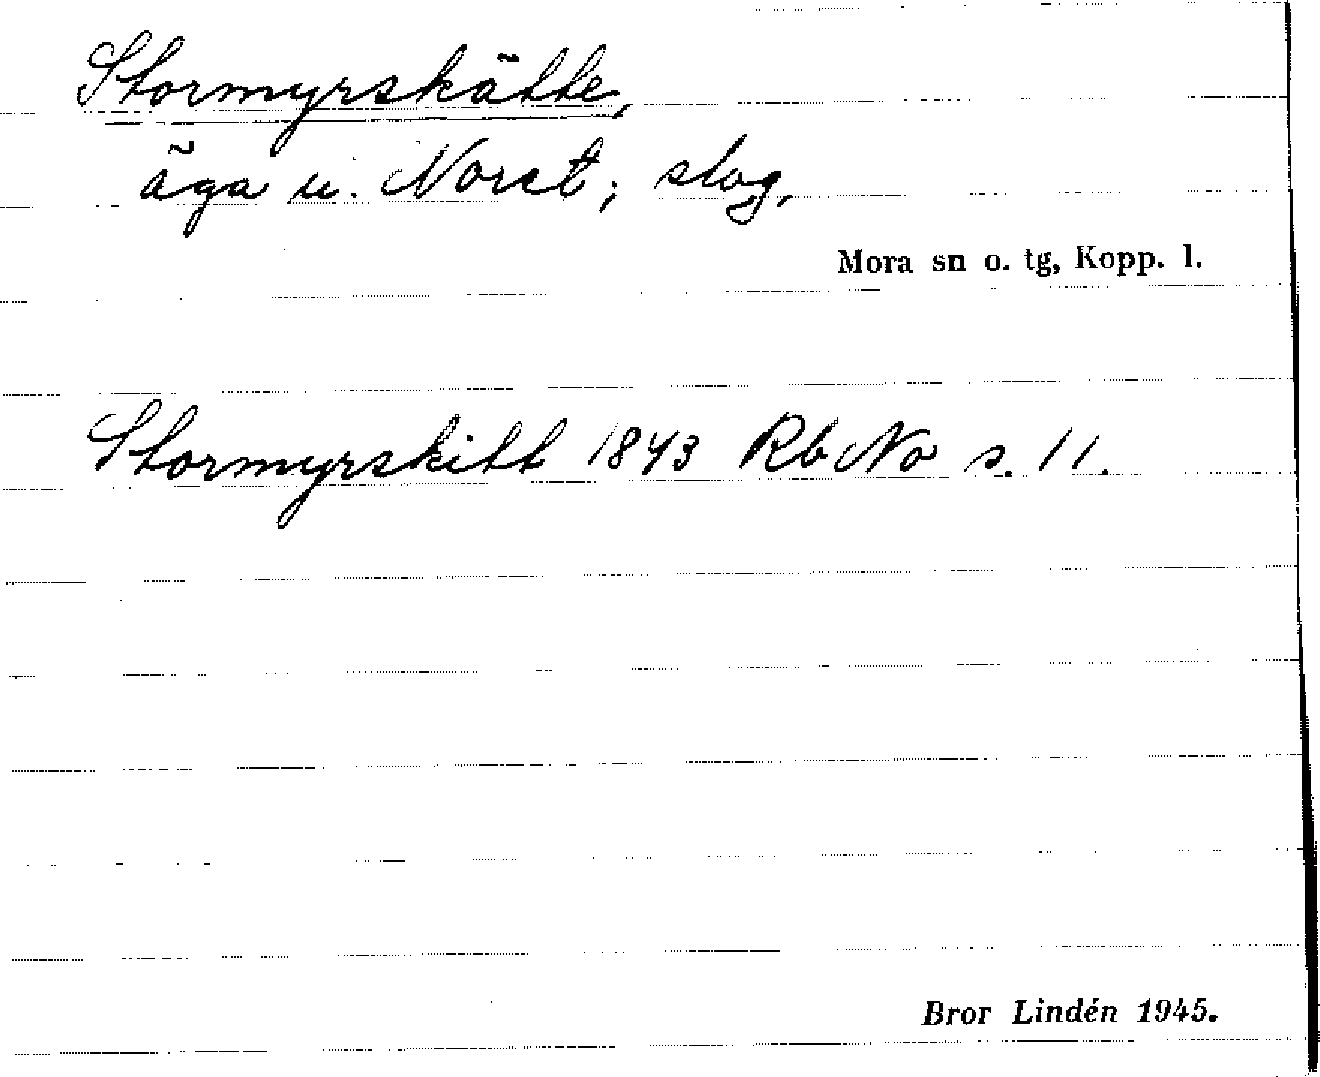 Stormyrskätte,
äga u. Noret; slog.
Mora sn o. tg, Kopp. l.
Stormyrskitt 1843 Rb No s. 11.
Bror Lindén 1945.